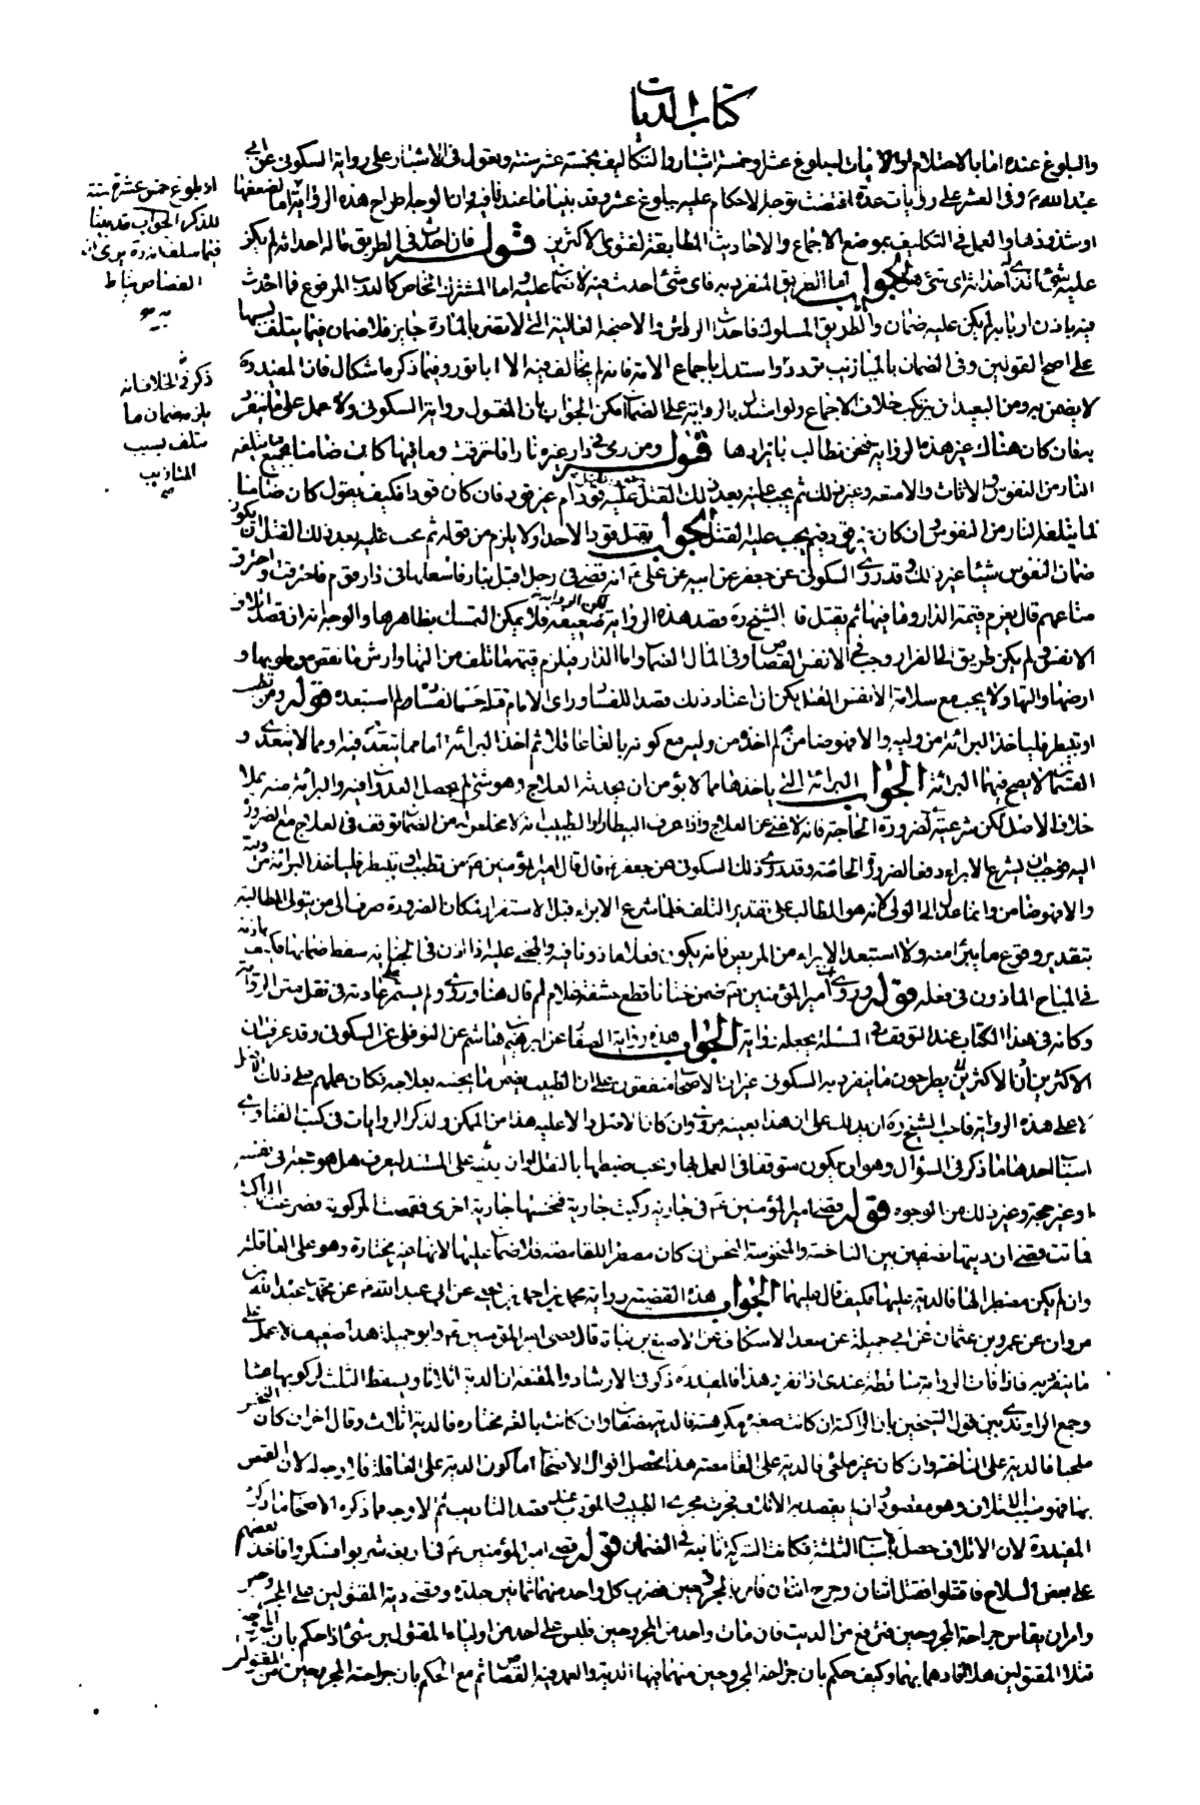 كتاب الديات
والبلوغ عنده اما بالاحتلام او الانبات او ببلوغ عشر او خمسة اشبار والتكاليف بخمسة عشر سنة ويعول في الاشبار على رواية السكوني عن ابي
عبد الله ع وفي العشر على روايات عدة اقتضت توجه الاحكام عليه ببلوغ عشر وقد بينا ما عندنا فيه وان الوجه اطراح هذه الرواية اما لضعفها
او شذوذها والعمل في التكليف بموضع الاجماع والاحاديث المطابقة لفتوى الاكثرين قوله فان احدث في الطريق ماله احداثه لم يكن
عليه شئ اذا احدث اي شئ هو الجواب اما الطريق المنفرد به فاي شئ احدث فيه لا ضمان عليه واما المشترك الخاص كالدرب المرفوع فما احدث
فيه باذن اربابه لم يكن عليه ضمان والطريق المسلوك فاحداث الرواشن والاجنحة العالية التي لا تضر بالمارة جايز فلا ضمان فيما يتلف بسببها
على اصح القولين وفي الضمان بالميازيب تردد واستدل باجماع الامة فانه لم يخالف فيه الا ابا ثور وفيما ذكره اشكال فان المفيد ره
لا يضمن به ومن البعيد ان يرتكب خلاف الاجماع ولو استدل بالرواية على الضمان امكن الجواب بان المنقول رواية السكوني ولا عمل على ما ينفرد
به فان كان هناك غير هذه الرواية فنحن نطالب بايرادها قوله ومن رمى في دار غيره نارا فاحترقت وما فيها كان ضامنا لجميع ما تتلفه
النار من النفوس والاثاث والامتعة وغير ذلك ثم يجب عليه بعد ذلك القتل عليه قود ام غير قود فان كان قودا فكيف يقول كان ضامنا
لما يتلفه النار من النفوس وان كان غير قود فبم يجب عليه القتل الجواب يقتل قودا لاحد ولا يلزم من قوله ثم يجب عليه بعد ذلك القتل ان يكون
ضمان النفوس شيئا غير ذلك وقد روى السكوني عن جعفر عن ابيه عن علي ع انه قضى في رجل اقبل بنار فاشعلها في دار قوم فاحترقت واحترق
متاعهم قال يغرم قيمة الدار وما فيها ثم يقتل قال الشيخ ره وقصد هذه الرواية لكن الرواية ضعيفة فلا يمكن التمسك بظاهرها والوجه انه ان قصد اتلاف
الانفس ولم يكن طريق الى الفرار وجب في الانفس القصاص وفي المال الضمان واما الدار فيلزم قيمة ما تلف من آلتها وارش ما نقص من طوبها و
ارضها وآلتها ولا يجب مع سلامة الانفس القتل لكن ان اعتاد ذلك وقصد للفساد وراى الامام قتله حسما لفساده لم استبعده قوله ومن تطبب
او تبيطر فليأخذ البرائة من وليه والا فهو ضامن لم اخذه من وليه مع كونه بالغا عاقلا ثم اخذ البرائة اما مما يتعدى فيه او مما لا يتعدى و
القسمان لا يصح فيهما البرائة الجواب البرائة التي ياخذها مما لا يؤمن ان يحدثه العلاج وهو شئ لم يحصل التعدي فيه والبرائة منه عملا
خلاف الاصل لكن شرعيته لضرورة الحاجة فانه لا غنى عن العلاج واذا عرف البيطار او الطبيب انه لا مخلص له من الضمان توقف في العلاج مع الضرورة
اليه فوجب ان يشرع الابراء دفعا لضرورة الحاجة وقد روى ذلك السكوني عن جعفر ع قال قال امير المؤمنين ع من تطبب او تبيطر فليأخذ البرائة من وليه
والا فهو ضامن وانما عدل الى الولي لانه هو المطالب على تقدير التلف فلما شرع الابراء قبل الاستقرار لمكان الضرورة صرف الى من يتولى المطالبة
بتقدير وقوع ما يبرأ منه ولا استبعد الابراء من المريض فانه يكون فعلا ماذونا فيه والمجني عليه اذا اذن في الجناية سقط ضمانها فكيف باذنه
في المباح الماذون في فعله قوله وروى ان امير المؤمنين ع ضمن ختانا قطع حشفة غلام لم قال هنا وروى ولم يستمر على عادته في نقل متن الرواية
وكانه في هذا الكتاب عند التوقف في المسئلة يجعله رواية الجواب هذه رواية الصفار عن ابرهيم بن هاشم عن النوفلي عن السكوني وقد عرفت ان
الاكثرين يطرحون ما ينفرد به السكوني غير ان الاصحاب متفقون على ان الطبيب يضمن ما يجنيه بعلاجه فكان عملهم على ذلك الاصل
لا على هذه الرواية فاحب الشيخ ره ان يدلك على ان هذا بعينه مروي وان كان الاصل دالا عليه هذا من الممكن ولذكر الروايات في كتب الفتاوى
اسباب احدها ما ذكر في السؤال وهو ان يكون متوقفا في العمل بها ويحب ضبطها بالنقل او ان ينبه على المستند ليعرف هل هو حجة في نفسه
او غير حجة وغير ذلك من الوجوه قوله وقضى امير المؤمنين ع في جارية ركبت جارية فنخستها جارية اخرى فقمصت المركوبة فصرعت الراكبة
فماتت فقضى ان ديتها نصفين بين الناخسة والمنخوسة النخس ان كان مضطرا للقامصة فلا ضمان عليها لانها غير مختارة وهو على العاقلة
وان لم يكن مضطرا لها فالدية عليها فكيف قال عليهما الجواب هذه القضية رواية محمد بن احمد بن يحيى عن ابي عبد الله ع عن محمد بن عبد الله بن
مروان عن عمرو بن عثمان عن ابي جميلة عن سعد الاسكاف عن الاصبغ بن نباتة قال قضى امير المؤمنين ع وابو جميلة هذا ضعيف لا عمل على
ما ينفرد به فاذا فالرواية ساقطة عندي اذا تفرد هذا فالمفيد ره ذكر في الارشاد والمقنعة ان الدية اثلاثا ويسقط الثلث لركوبها عبثا
وجمع الراوندي بين قول الشيخين بان الراكبة ان كانت صغيرة مكرهة فالدية نصفان وان كانت بالغة مختارة فالدية اثلاث وقال آخر ان كان النخس
ملجئا فالدية على الناخسة وان كان غير ملجئ فالدية على القامصة هذا محصل اقوال الاصحاب اما كون الدية على العاقلة فلا وجه له لان القمص
بهما فهو سبب الاتلاف وهو مقصود وان لم يقصد به الاتلاف فجرت مجرى الطبيب والمؤدب عند قصد التاديب ثم الاوجه مما ذكره الاصحاب ما ذكره
المفيد ره لان الاتلاف حصل باسباب الثلثة فكانت الشركة ثابتة في الضمان قوله وقضى امير المؤمنين ع في اربعة شربوا فسكروا فاخذ بعضهم
على بعض السلاح فاقتتلوا فقتل اثنان وجرح اثنان فامر بالمجروحين فضرب كل واحد منهما ثمانين جلدة وقضى دية المقتولين على المجروحين
وامر ان يقاس جراحة المجروحين فترفع من الدية فان مات واحد من المجروحين فليس على احد من اولياء المقتولين شئ اذا حكم بان المجروحين
قتلا المقتولين هلا اقادهما بهما وكيف حكم بان جراحة المجروحين منهما فيها الدية والعمد فيه القصاص ثم مع الحكم بان جراحة المجروحين من المقتولين
او بلوغ خمس عشرة سنة
للذكر الجواب قد بينا
فيما سلف انه ره يرى ان
القصاص يناط
به
ذكر في الخلاف انه
يلزمه ضمان ما
يتلف بسبب
الميازيب